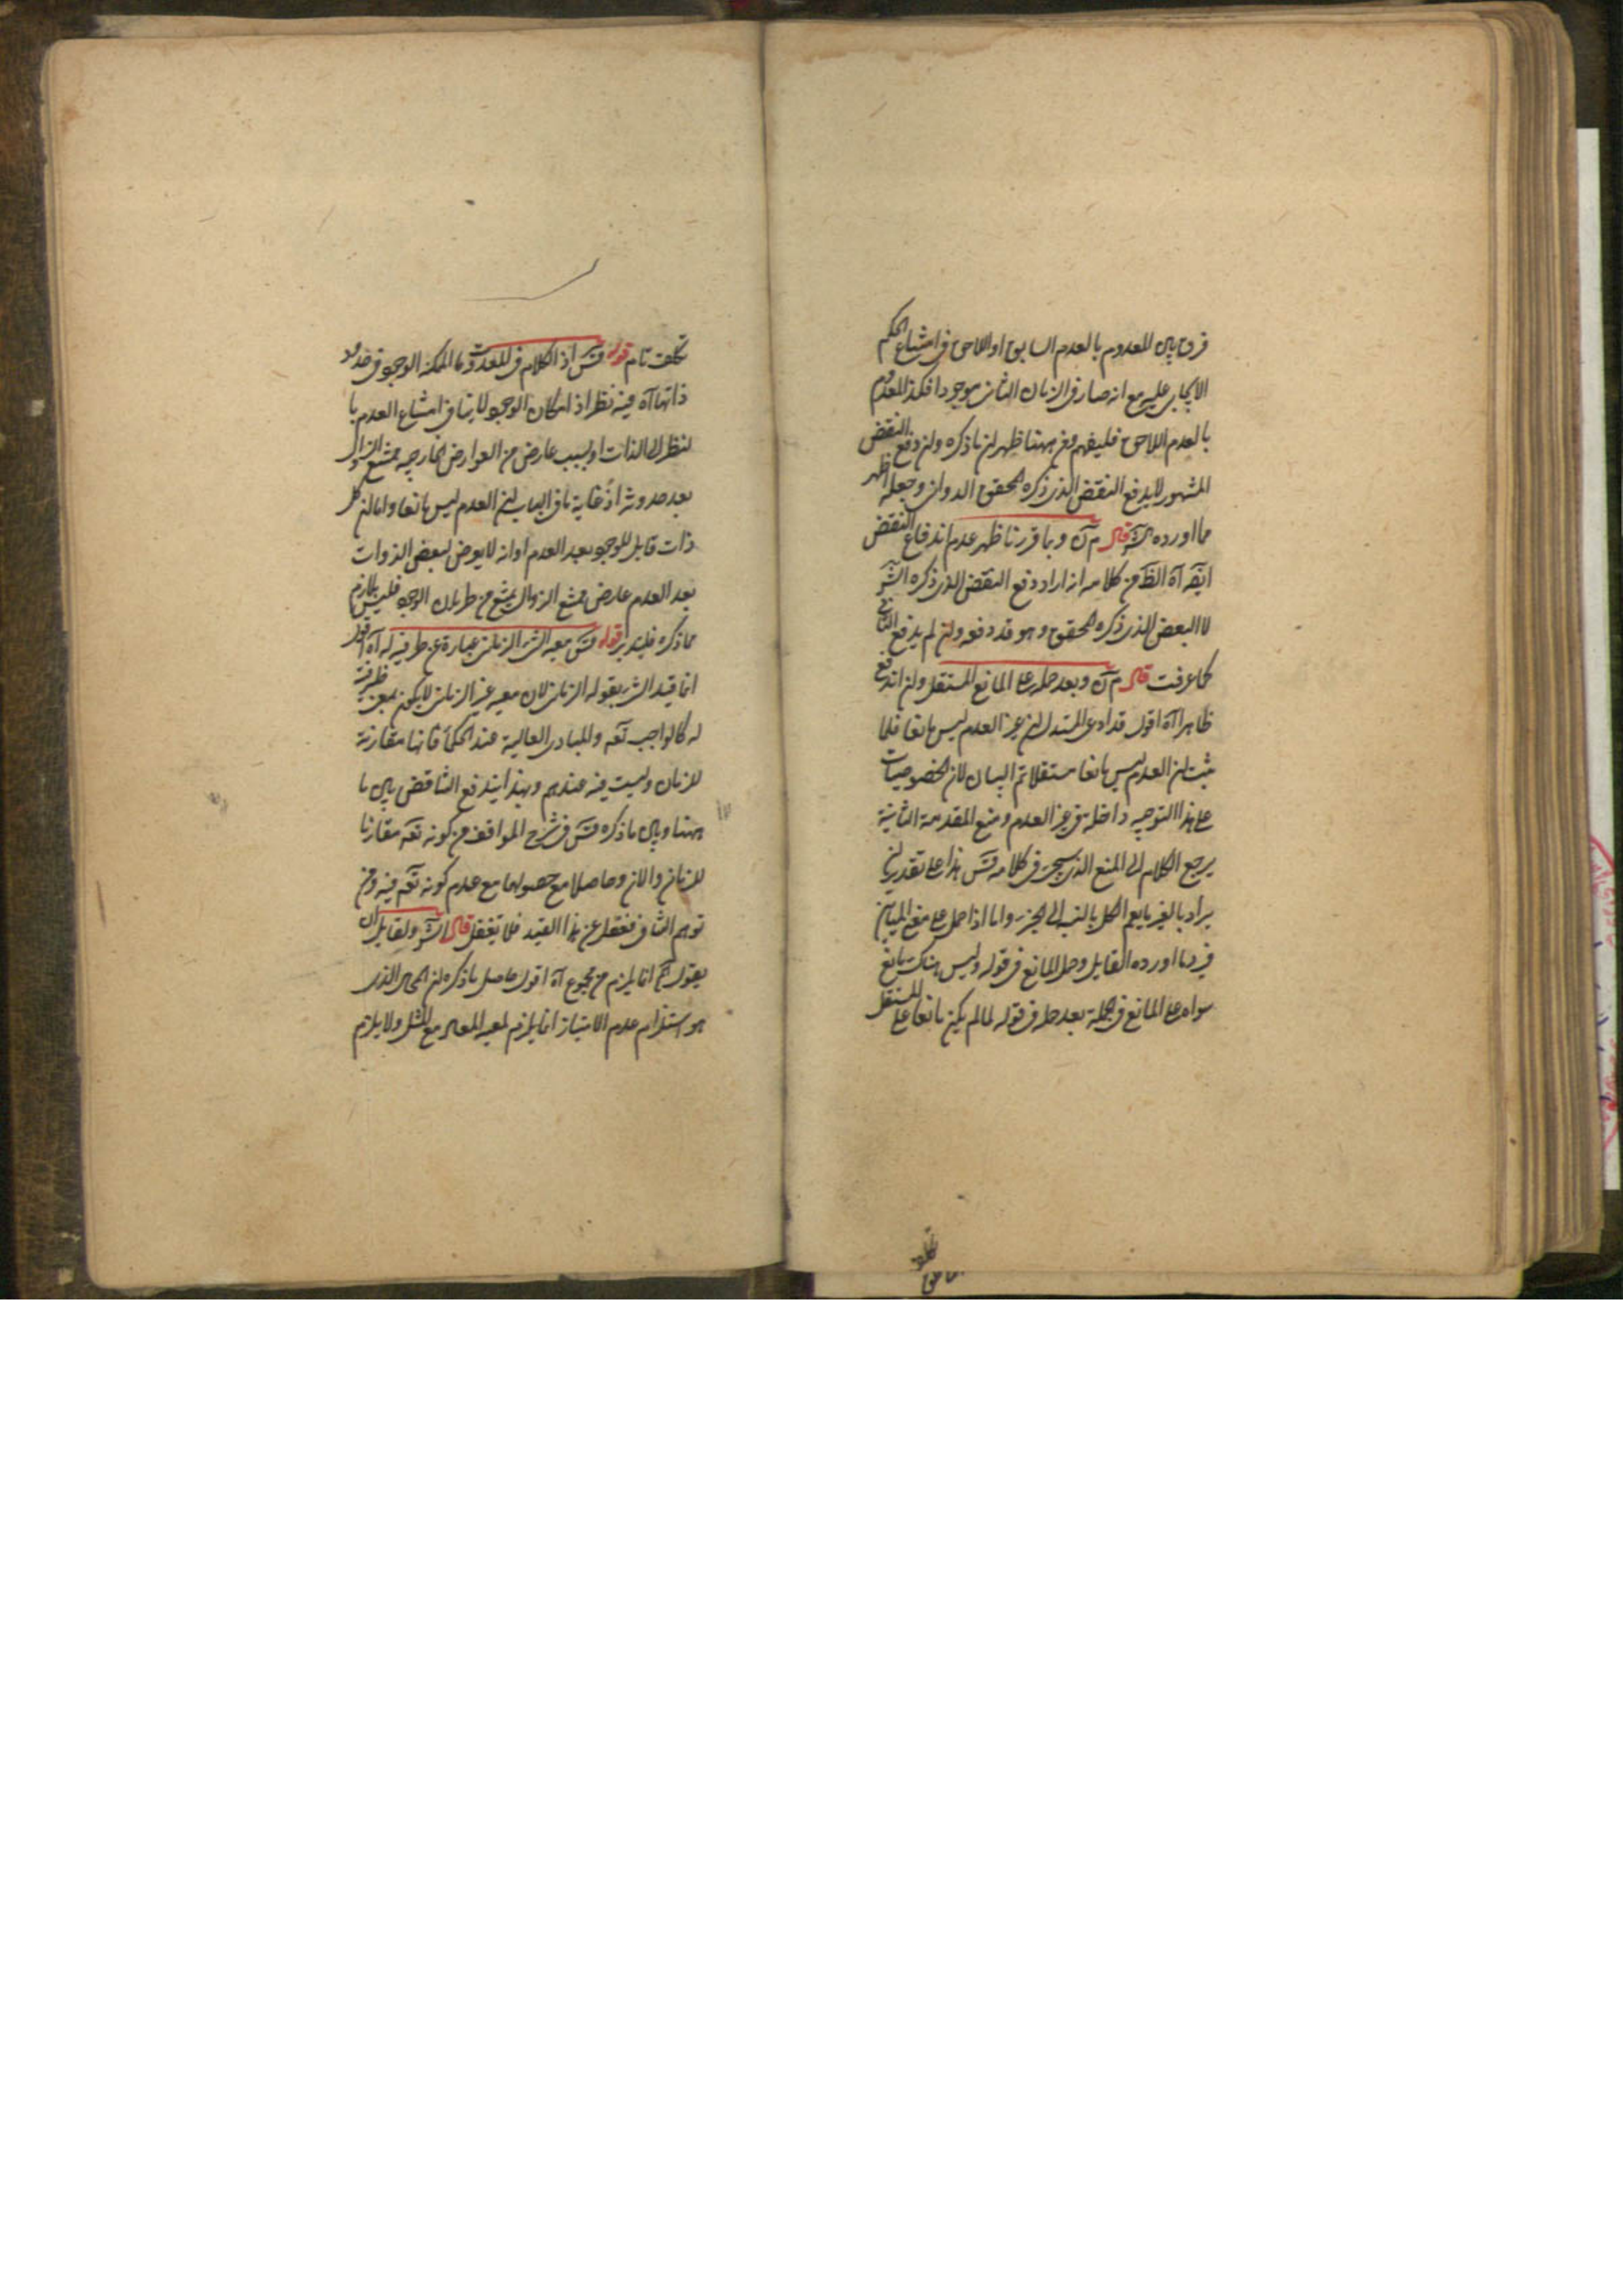 فرق بين المعدوم بالعدم السابق او اللاحق في امتناع الحكم
الايجابي عليه مع انه صار في الزمان الثاني موجودا فكذا المعدوم
بالعدم اللاحق فليفهم ومن ههنا ظهر ان ما ذكره وان دفع النقض
المشهور لا يدفع النقض الذي ذكره المحقق الدواني وجعله اظهر
مما اورده الش قال م آن وبما قررنا ظهر عدم اندفاع النقض
ايضه آه الظ من كلامه انه اراد دفع النقض الذي ذكره الش
لا البعض الذي ذكره المحقق وهو قد دفعه وان لم يدفع الثاني
كما عرفت قال م آن وبعد حمله على المانع المستقل وان اندفع
ظاهرا آه اقول قد ادعى المستدل ان عين العدم ليس مانعا فلما
ثبت ان العدم ليس مانعا مستقلا تم البيان لان الخصوصيات
على هذا التوجيه داخلة في غير العدم ومنع المقدمة الثانية
يرجع الكلام الى المنع الذي سيجئ في كلامه قس هذا على تقدير ان
يراد بالغير ما يعم الكل بالنسبة الى الجزء واما اذا حمل على معنى المباين
فيرد ما اورده القايل وحمل المانع في قوله وليس هناك مانع
سواه على المانع في الجملة بعد حمله في قوله لما لم يكن مانعا على المستقل
تكلف تام قوله قس اذ الكلام في المعدومات الممكنة الوجود في حدود
ذاتها آه فيه نظر اذ امكان الوجود لا ينافي امتناع العدم با
لنظر الى الذات او بسبب عارض من العوارض الخارجية ممتنع الزوال
بعد حدوثه اذ غاية ما في الباب ان العدم ليس مانعا واما ان كل
ذات قابل للوجود بعد العدم او انه لا يعرض لبعض الذوات
بعد العدم عارض ممتنع الزوال يمنع من طريان الوجود فليس بلازم
مما ذكره فليتدبر قوله قس معية الشئ الزماني عبارة عن ظرفيته له آه اقول
انما قيد الشئ بقوله الزماني لان معية غير الزماني لا يكون بمعنى ظرفية
له كالواجب تعه والمبادى العالية عند الحكماء فانها مقارنة
للزمان وليست فيه عندهم وبهذا يندفع التناقض بين ما
ههنا وبين ما ذكره قس في شرح المواقف من كونه تعه مقارنا
للزمان والآن وحاصلا مع حصولهما مع عدم كونه تعه فيه ومن
توهم التنافي فغفل عن هذا القيد فلا تغفل قال الش ولقايل ان
يقول انما يلزم من مجموع آه اقول حاصل ما ذكره ان المحال الذي
هو استلزام عدم الامتياز انما يلزم لعود المعدوم مع المثل ولا يلزم